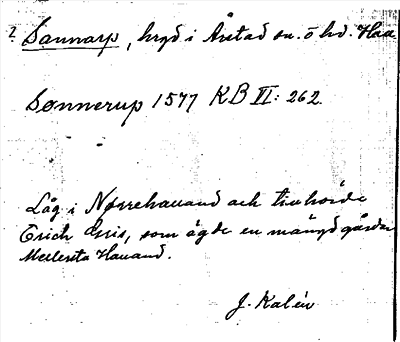 ? Sannarp, bygd i Årstad sn. o hd. Hall
Sønnerup 1577 KB II: 262.
Låg i Nørrehalland och tillhörde
Erich Gris, som ägde en mängd gårdar
Mellersta Halland.
J. Kalén